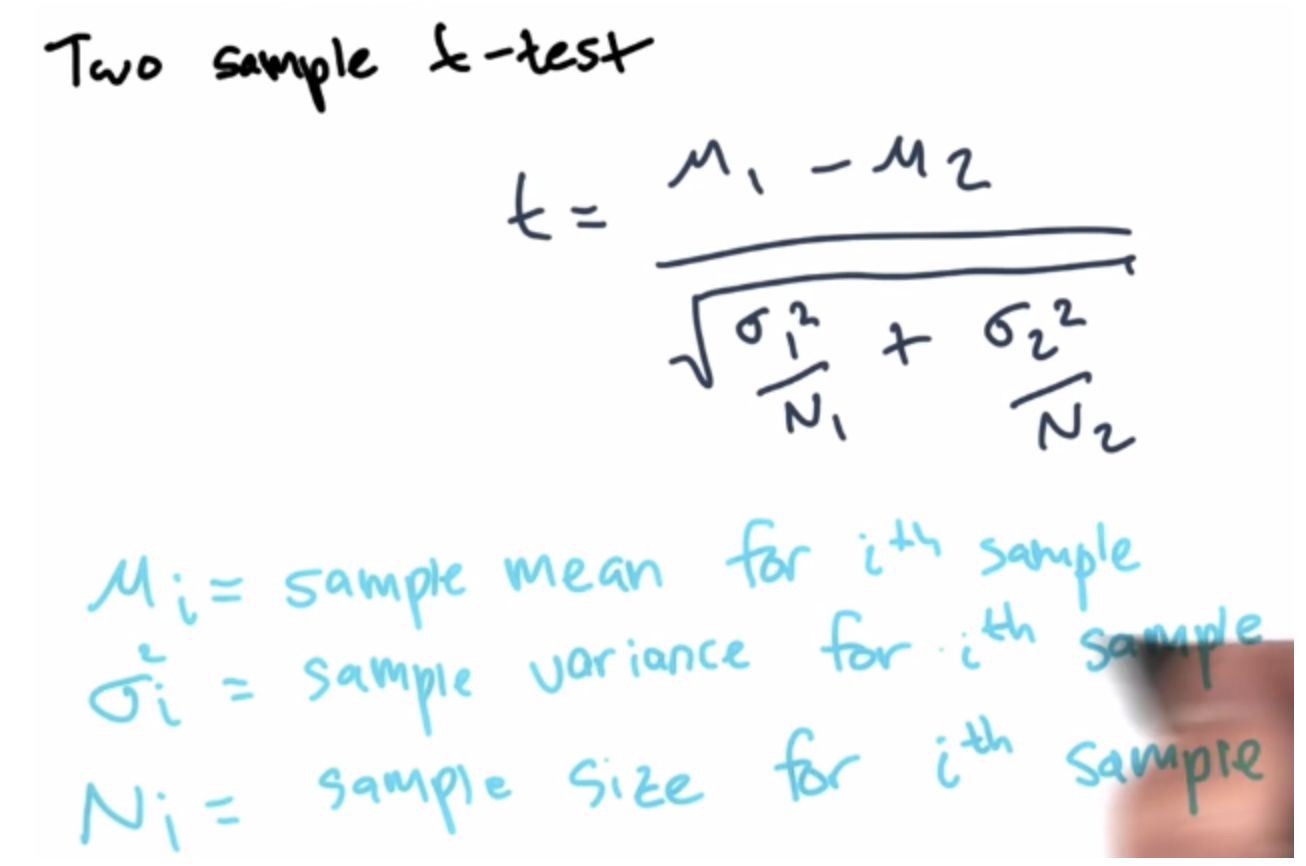 Two sample t-test
t = μ₁ - μ₂
√ σ₁² + σ₂²
N₁ N₂
μᵢ = sample mean for iᵗʰ sample
σᵢ² = sample variance for iᵗʰ sample
Nᵢ = sample size for iᵗʰ sample